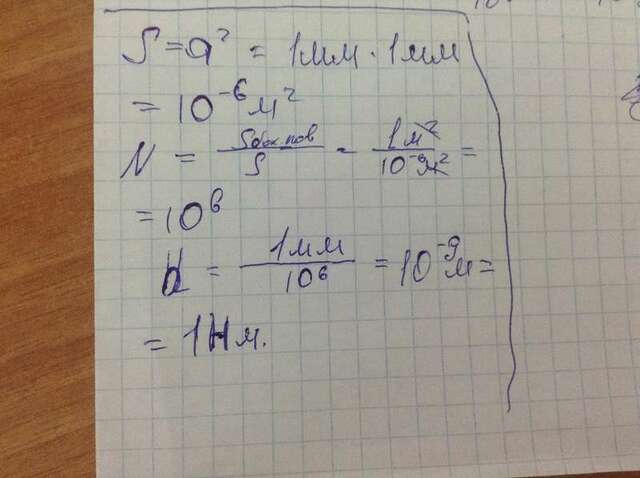 S = a² = 1мм · 1мм
= 10⁻⁶ м²
N = Sбок.пов / S = 1м² / 10⁻⁶м² =
= 10⁶
d = 1мм / 10⁶ = 10⁻⁹м =
= 1Нм.